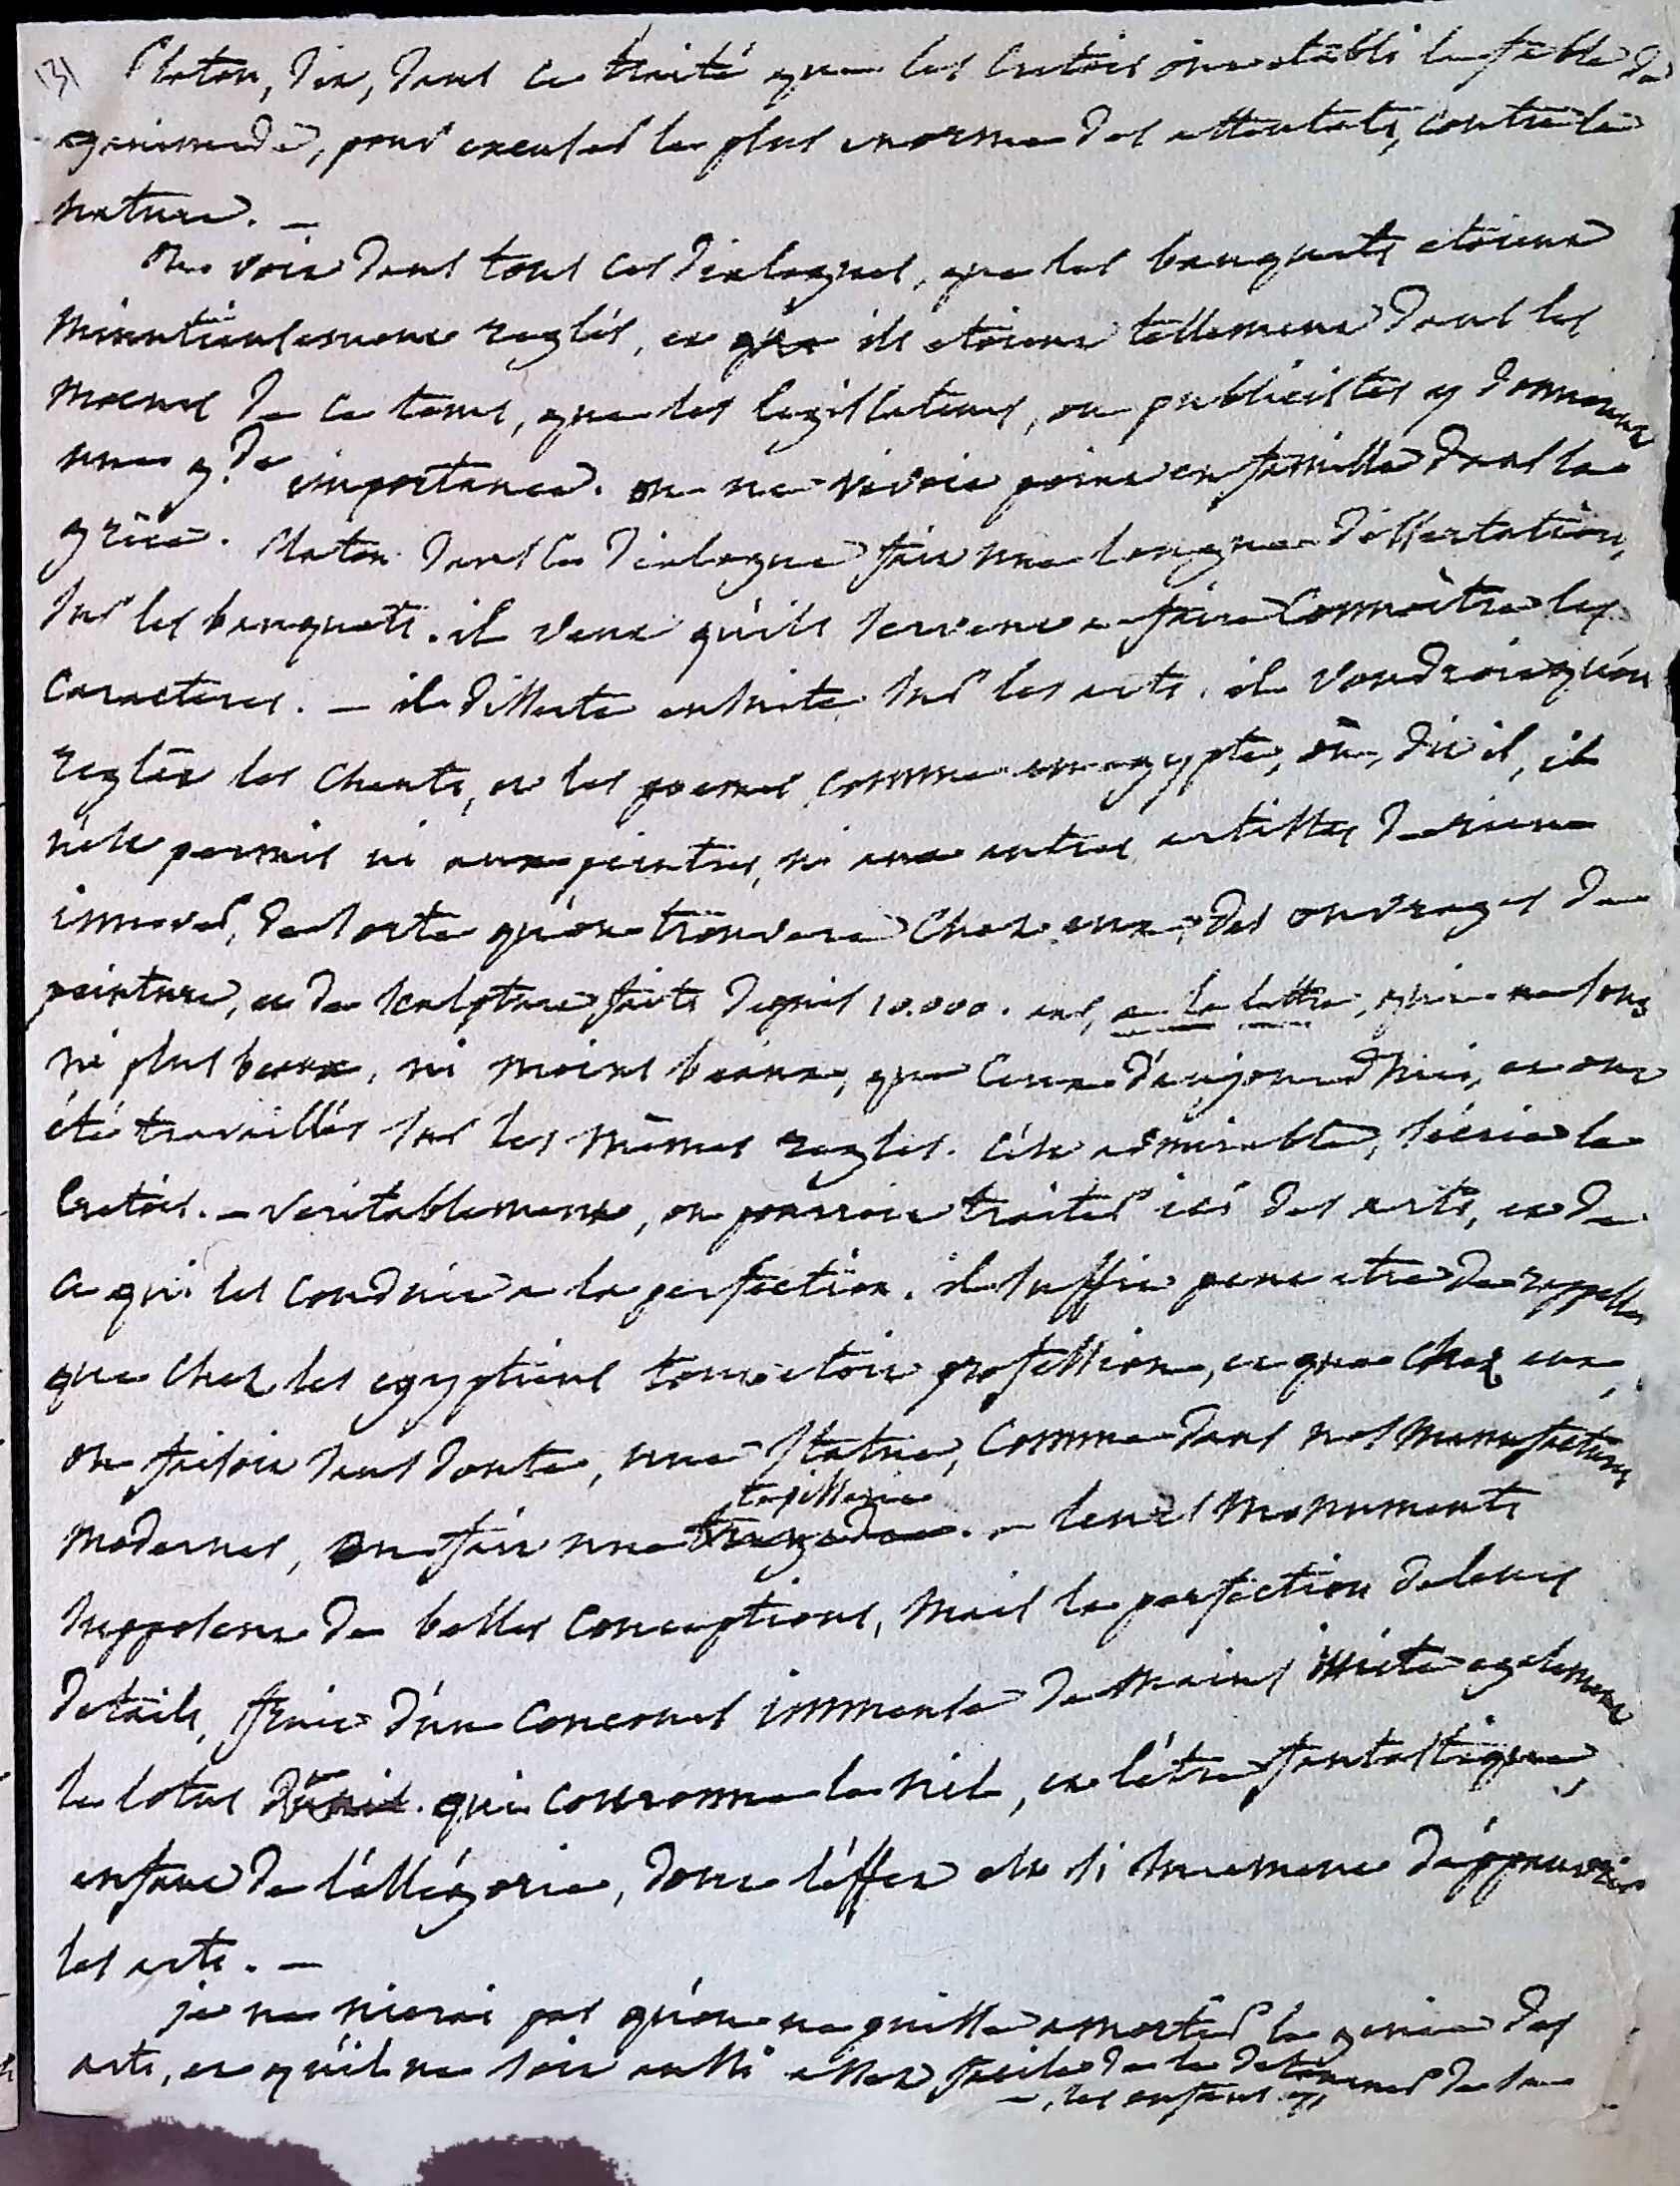 131
Platon, dit, dans ce traité que les Cretois ont etabli la fable de
ganimede, pour excuser le plus enorme des attentats, contre la
nature. —
On voit dans tous ces dialogues, que les banquets etoient
minutieusement reglés, et que ils etoient tellement dans les
moeurs de ce tems, que les legislateurs, ou publicistes y donnoient
une gde importance. on ne vivoit point en famille dans la
grèce. Platon dans ce dialogue fait une longue dissertation,
sur les banquets. il veut qu'ils servent a faire connoitre les
caracteres. — il disserte ensuite sur les arts. il voudroit qu'on
reglât les chants, et les poemes comme en egypte, où, dit il, il
n'est permis ni aux peintres, ni aux autres artistes de rien
innover, de sorte qu'on trouvera chez eux des ouvrages de
peinture, et de sculpture faits depuis 10.000. ans, a la lettre, qui ne sont
ni plus beaux, ni moins beaux, que ceux d'aujourd'hui, et ont
été travaillés sur les mêmes regles. c'est admirable, s'écrie le
Cretois. — veritablement, on pourroit traiter ici des arts, et de
ce qui les conduit a la perfection. il suffit peut etre de rappeller
que chez les egyptiens tout etoit profession, et que chez eux,
on faisoit sans doute, une statue, comme dans nos manufactures
modernes, on fait une tapisserie. — leurs monuments
supposent de belles conceptions, mais la perfection de leurs
details, fruit d'un concours immense de mains imite egalement
le lotus qui couronne le nil, et l'être fantastique,
enfant de l'allégorie, dont l'effet est si surement d'appauvrir
les arts. —
je ne nierai pas qu'on ne puisse amortir le genie des
arts, et qu'il ne soit aussi assez facile de le detourner de la
—, les enfans